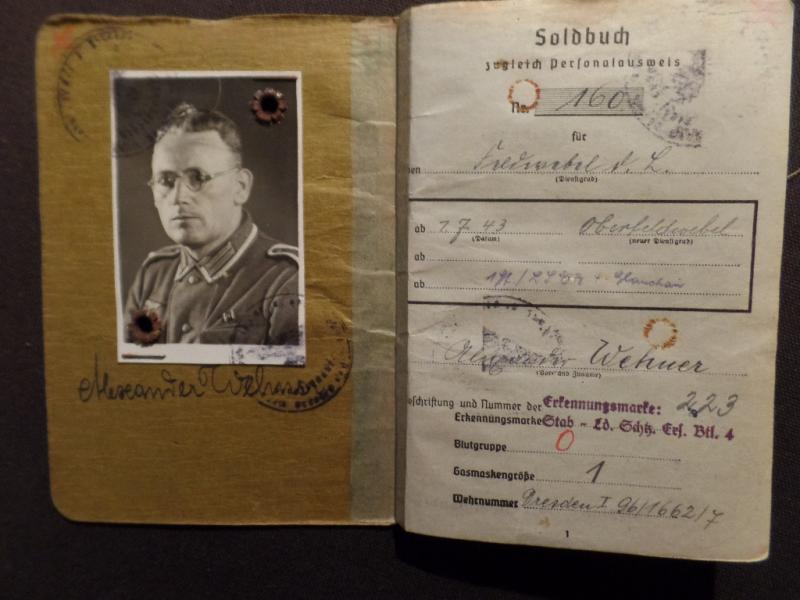 Alexander Wehner
Soldbuch
zugleich Personalausweis
Nr. 160
für
Feldwebel d. L.
(Dienstgrad)
ab 1.7.43 Oberfeldwebel
(Datum) (neuer Dienstgrad)
ab
ab
Alexander Wehner
(Vor- und Zuname)
eschriftung und Nummer der Erkennungsmarke: 223
Erkennungsmarke Stab - Ld. Schtz. Ers. Btl. 4
Blutgruppe O
Gasmaskengröße 1
Wehrnummer Dresden I 96/1662/7
1